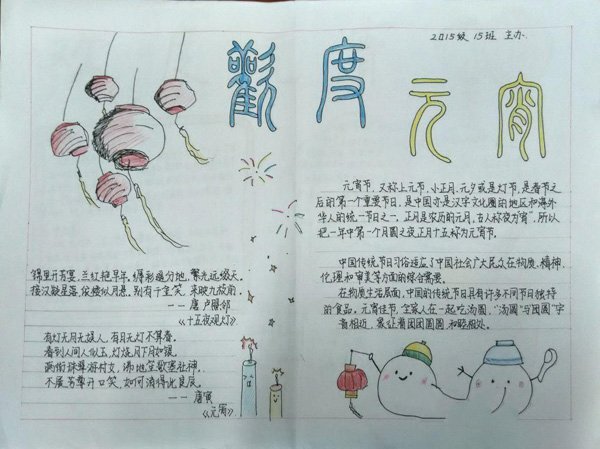 2015级 15班 主办.
歡度元宵
元宵节,又称上元节、小正月、元夕或是灯节,是春节之
后的第一个重要节日,是中国亦是汉字文化圈的地区和海外
华人的统一节日之一,正月是农历的元月,古人称夜为宵,所以
把一年中第一个月圆之夜正月十五称为元宵节。
中国传统节日习俗适应了中国社会广大民众在物质、精神、
伦理和审美等方面的综合需要。
在物质生活层面,中国的传统节日具有许多不同节日独特
的食品。元宵佳节,全家人在一起吃汤圆,"汤圆"与"团圆"字
音相近,象征着团团圆圆,和睦相处。
锦里开芳宴,兰红艳早年。缛彩遥分地,繁光远缀天。
接汉疑星落,依楼似月悬。别有千金笑,来映九枝前。
——唐 卢照邻
《十五夜观灯》
有灯无月无娱人,有月无灯不算春。
春到人间人似玉,灯烧月下月如银。
满街珠翠游村女,沸地笙歌赛社神。
不展芳尊开口笑,如何消得此良辰。
——唐寅
《元宵》